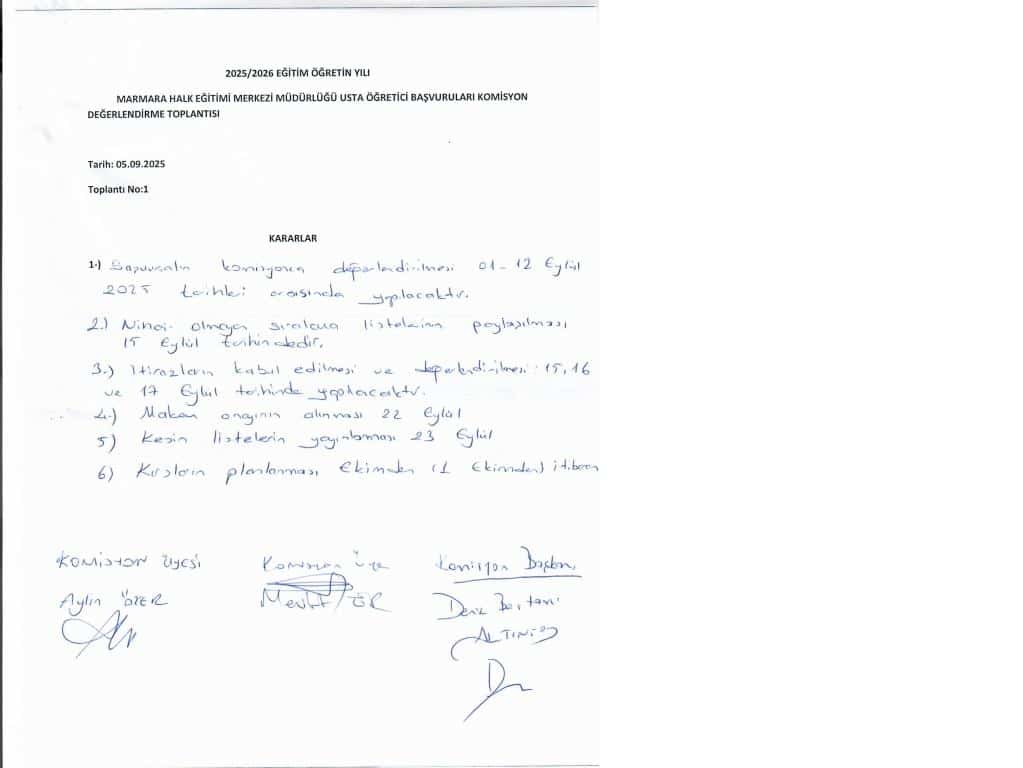 2025/2026 EĞİTİM ÖĞRETİN YILI
MARMARA HALK EĞİTİMİ MERKEZİ MÜDÜRLÜĞÜ USTA ÖĞRETİCİ BAŞVURULARI KOMİSYON
DEĞERLENDİRME TOPLANTISI
Tarih: 05.09.2025
Toplantı No:1
KARARLAR
1-) Başvuruların komisyonca değerlendirilmesi 01-12 Eylül
2025 tarihleri arasında yapılacaktır.
2.) Nihai olmayan sıralama listelerinin paylaşılması
15 Eylül tarihindedir.
3.) İtirazların kabul edilmesi ve değerlendirilmesi 15,16
ve 17 Eylül tarihinde yapılacaktır.
4.) Makam onayının alınması 22 Eylül
5) Kesin listelerin yayınlanması 23 Eylül
6) Kursların planlanması Ekimden (1 Ekimden) itibaren
KOMİSYON ÜYESİ Komisyon Üye Komisyon Başkanı
Aylin ÖZER Deniz
ALTINIŞ